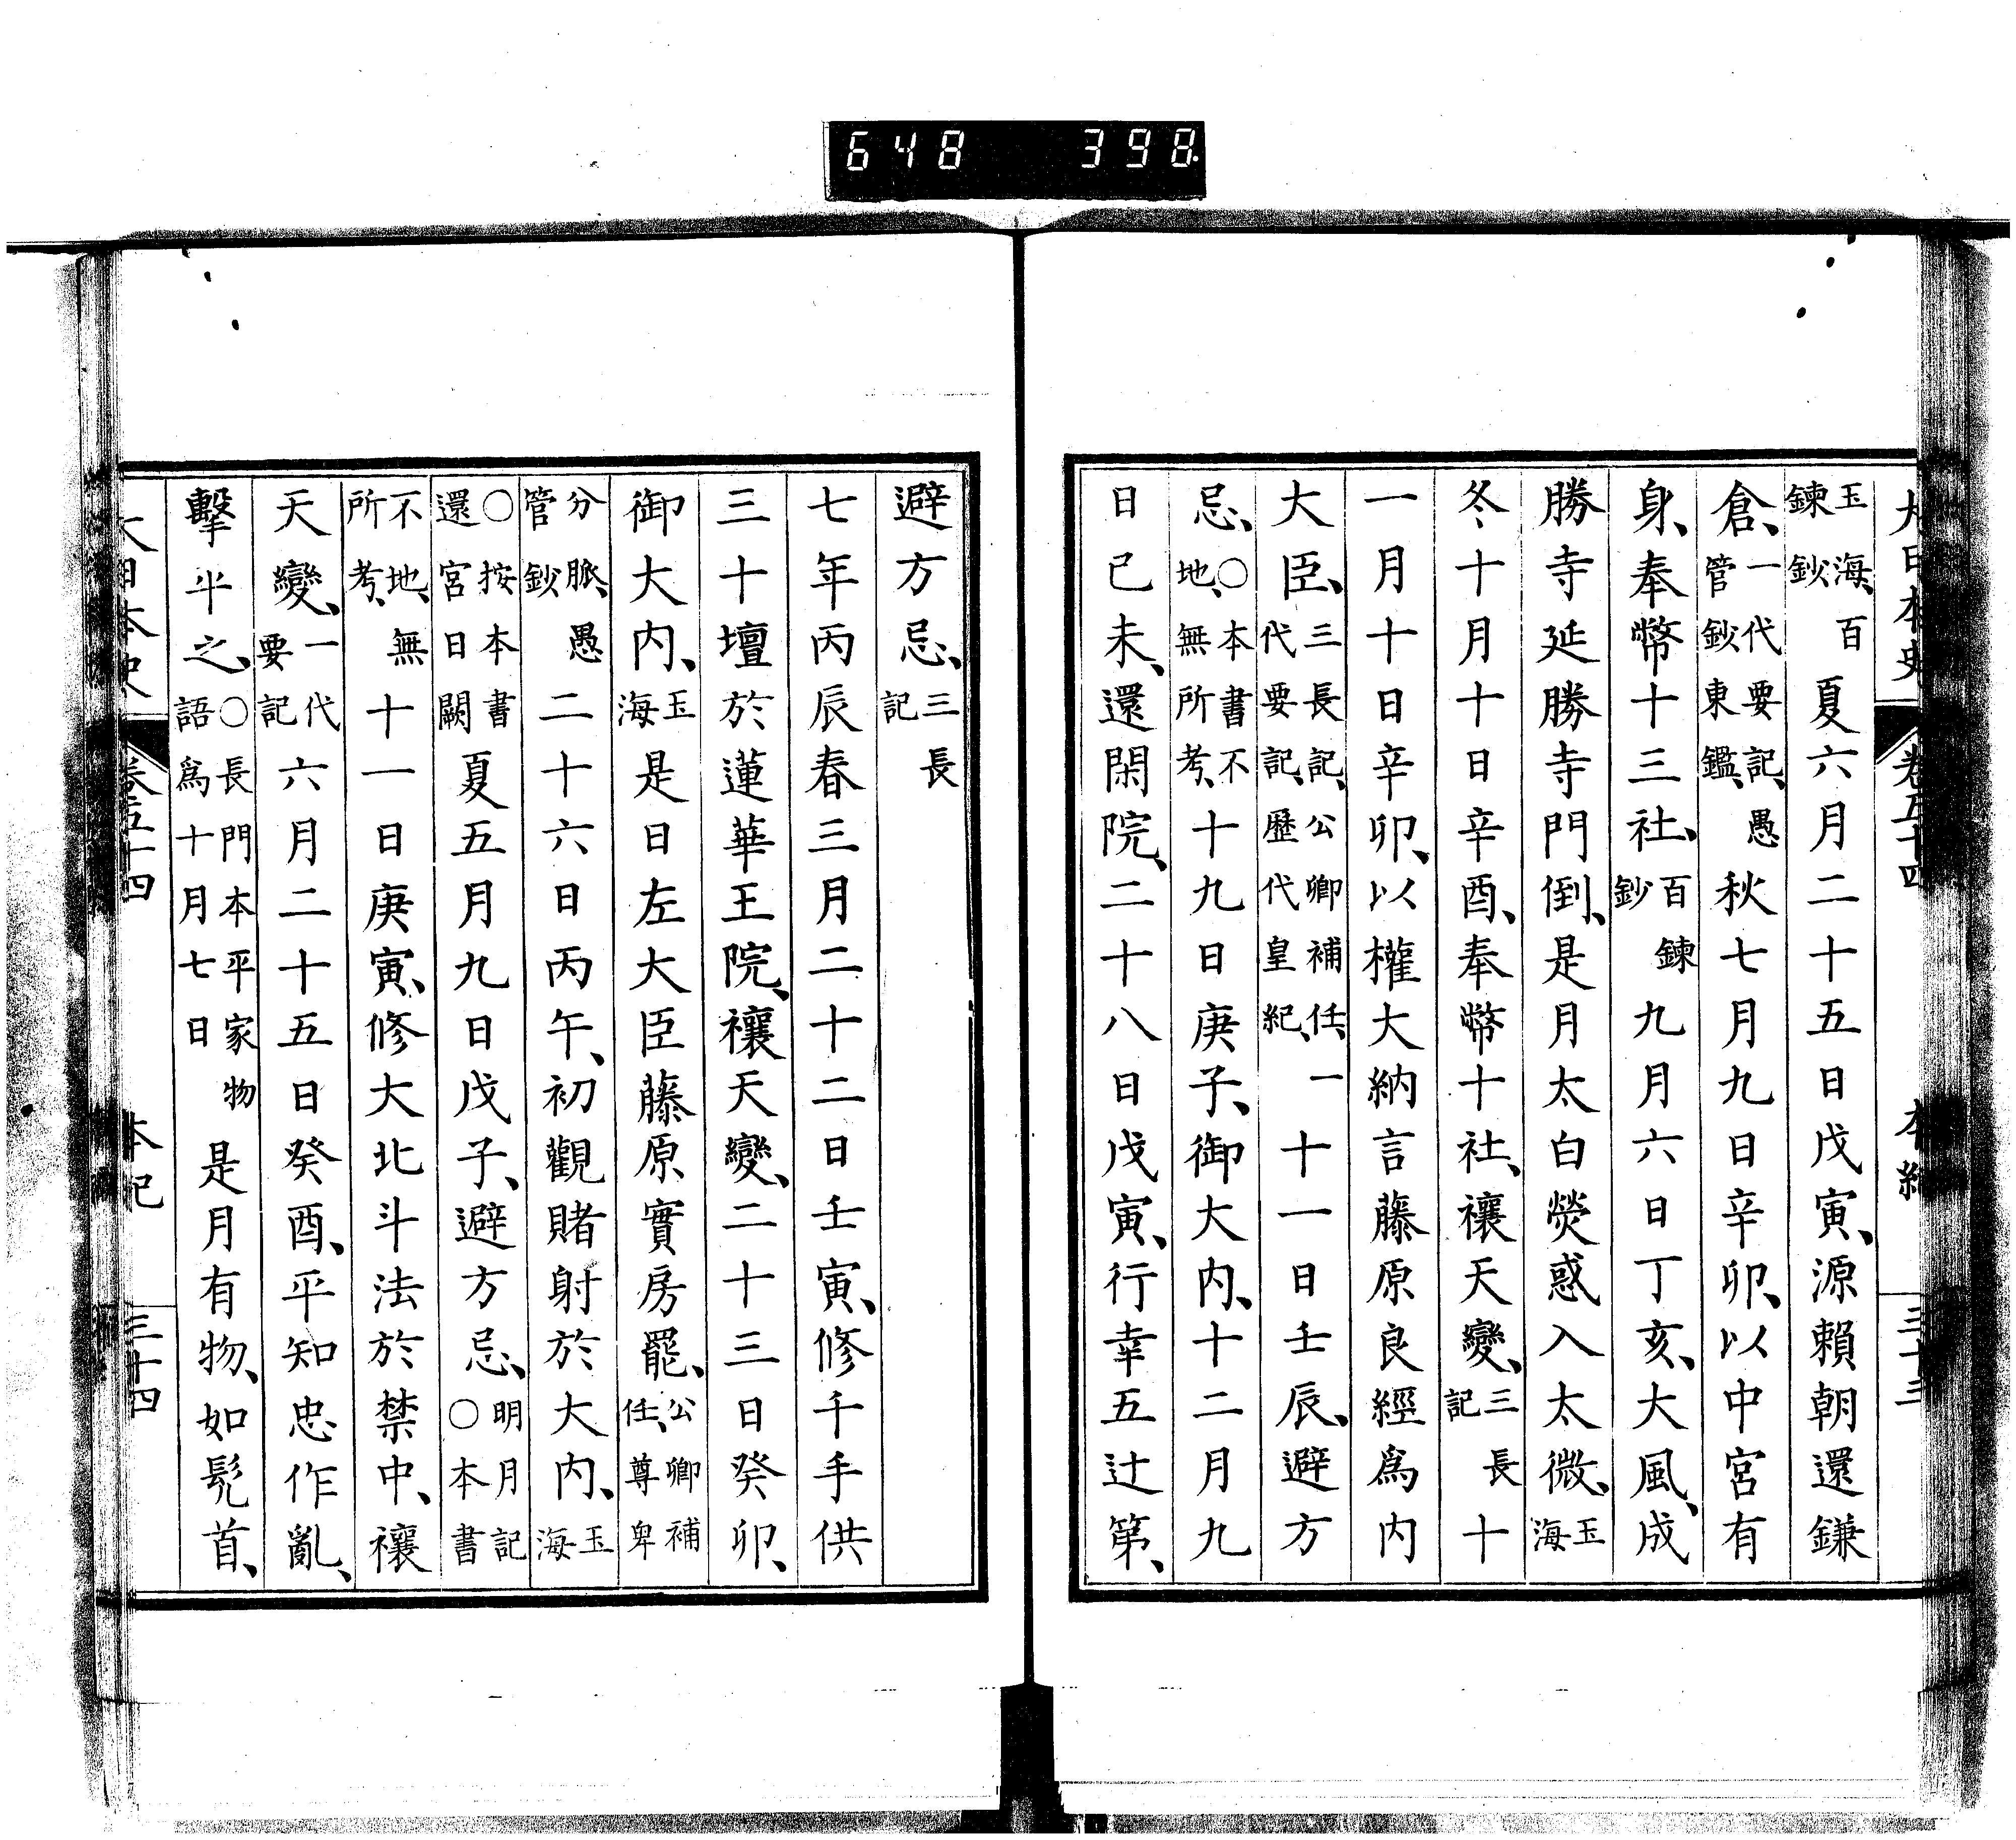 648 398.
大日本史 卷五十四 本紀 三十三
玉海、百鍊鈔 夏六月二十五日戊寅、源賴朝還鎌
倉、一代要記、愚管鈔、東鑑、 秋七月九日辛卯、以中宮有
身、奉幣十三社、百鍊鈔 九月六日丁亥、大風、成
勝寺延勝寺門倒、是月太白熒惑入太微、玉海
冬、十月十日辛酉、奉幣十社、禳天變、三長記 十
一月十日辛卯、以權大納言藤原良經爲内
大臣、三長記、公卿補任、一代要記、歷代皇紀、 十一日壬辰、避方
忌、○本書不地、無所考、 十九日庚子、御大内、十二月九
日己未、還閑院、二十八日戊寅、行幸五辻第、
避方忌、三長記
七年丙辰春三月二十二日壬寅、修千手供
三十壇於蓮華王院、禳天變、二十三日癸卯、
御大内、玉海 是日左大臣藤原實房罷、公卿補任、尊卑
分脈、愚管鈔 二十六日丙午、初觀賭射於大内、玉海
○按本書還宮日闕 夏五月九日戊子、避方忌、明月記○本書
不地、無所考、 十一日庚寅、修大北斗法於禁中、禳
天變、一代要記 六月二十五日癸酉、平知忠作亂、
擊斗之、○長門本平家物語爲十月七日 是月有物、如髡首、
大日本史 卷五十四 本紀 三十四